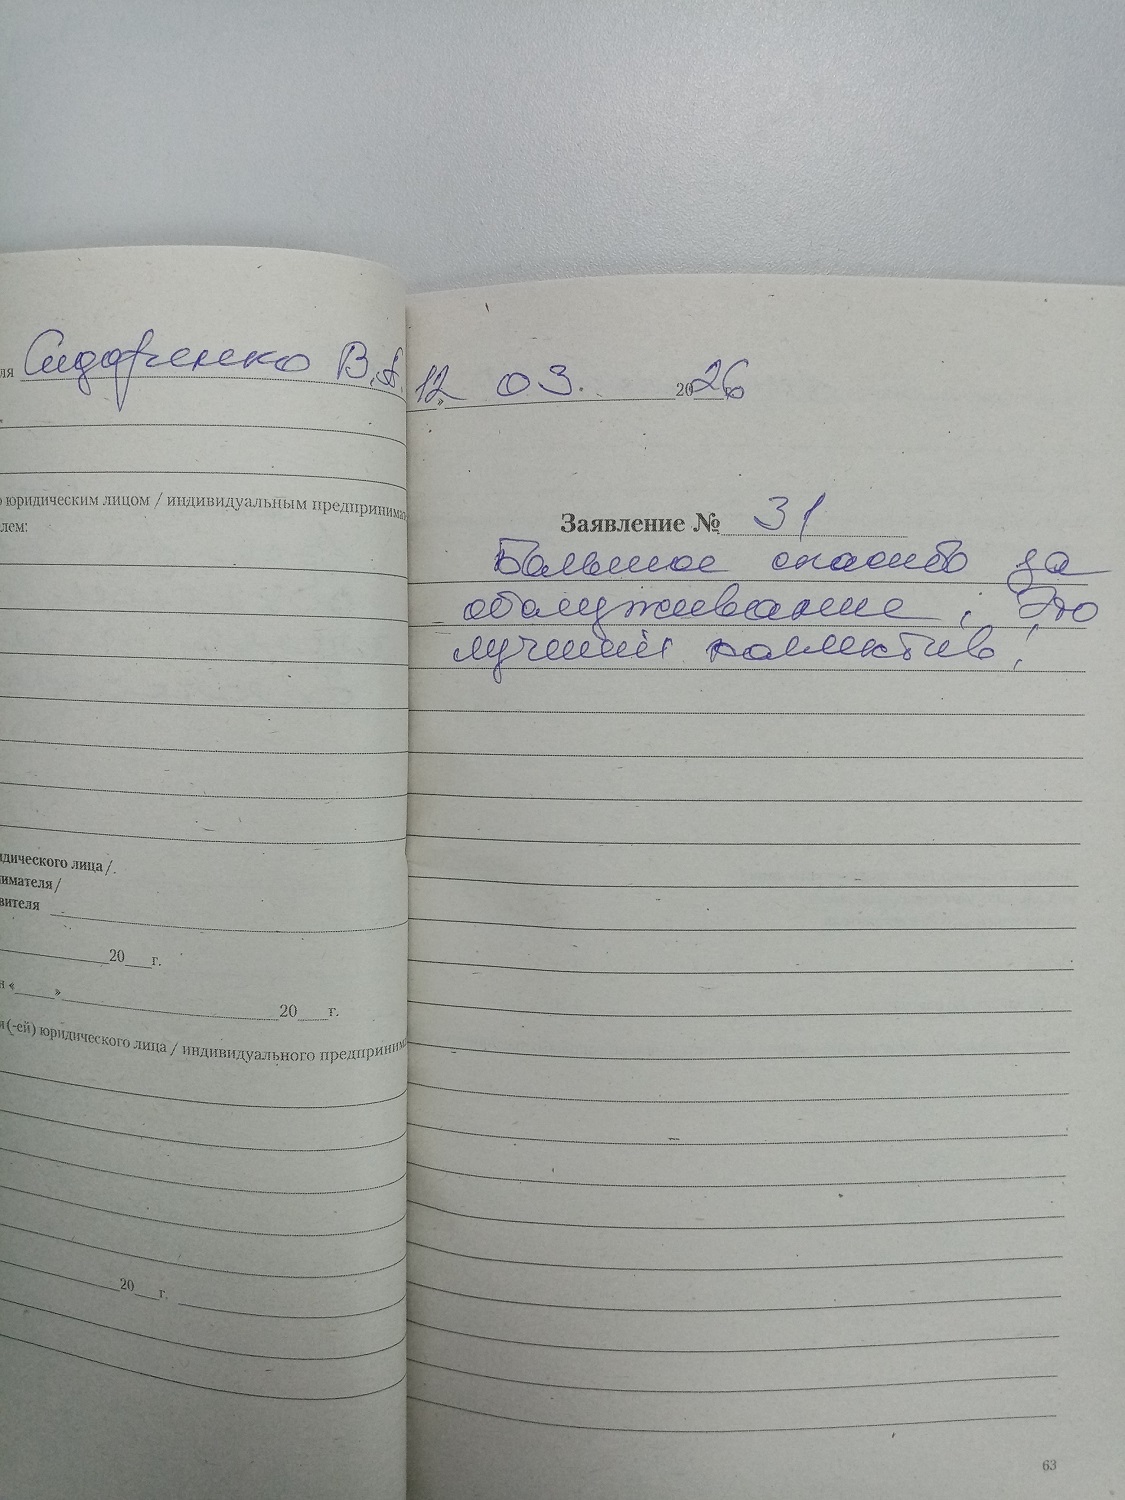 ля Сидоренко В.А.
о юридическим лицом / индивидуальным предпринима
лем:
идического лица /
нимателя /
вителя
20 г.
я « » 20 г.
я(-ей) юридического лица / индивидуального предпринима
20 г.
12 » 03. 2026
Заявление № 31
Большое спасибо за
обслуживание, Это
лучший коллектив!
63